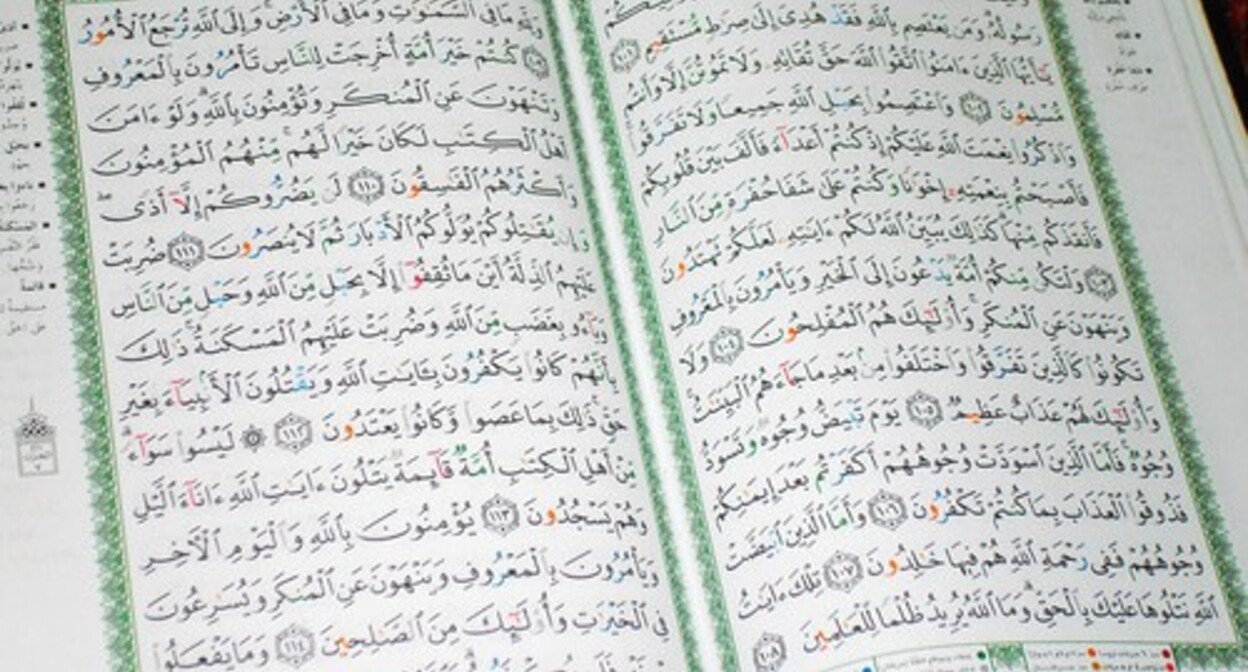 رَسُولُهُۥ وَمَن يَعْتَصِم بِٱللَّهِ فَقَدْ هُدِىَ إِلَىٰ صِرَٰطٍ مُّسْتَقِيمٍ ١٠١
يَٰٓأَيُّهَا ٱلَّذِينَ ءَامَنُوا۟ ٱتَّقُوا۟ ٱللَّهَ حَقَّ تُقَاتِهِۦ وَلَا تَمُوتُنَّ إِلَّا وَأَنتُم
مُّسْلِمُونَ ١٠٢ وَٱعْتَصِمُوا۟ بِحَبْلِ ٱللَّهِ جَمِيعًا وَلَا تَفَرَّقُوا۟
وَٱذْكُرُوا۟ نِعْمَتَ ٱللَّهِ عَلَيْكُمْ إِذْ كُنتُمْ أَعْدَآءً فَأَلَّفَ بَيْنَ قُلُوبِكُمْ
فَأَصْبَحْتُم بِنِعْمَتِهِۦٓ إِخْوَٰنًا وَكُنتُمْ عَلَىٰ شَفَا حُفْرَةٍ مِّنَ ٱلنَّارِ
فَأَنقَذَكُم مِّنْهَا كَذَٰلِكَ يُبَيِّنُ ٱللَّهُ لَكُمْ ءَايَٰتِهِۦ لَعَلَّكُمْ تَهْتَدُونَ
١٠٣ وَلْتَكُن مِّنكُمْ أُمَّةٌ يَدْعُونَ إِلَى ٱلْخَيْرِ وَيَأْمُرُونَ بِٱلْمَعْرُوفِ
وَيَنْهَوْنَ عَنِ ٱلْمُنكَرِ وَأُو۟لَٰٓئِكَ هُمُ ٱلْمُفْلِحُونَ ١٠٤ وَلَا
تَكُونُوا۟ كَٱلَّذِينَ تَفَرَّقُوا۟ وَٱخْتَلَفُوا۟ مِنۢ بَعْدِ مَا جَآءَهُمُ ٱلْبَيِّنَٰتُ
وَأُو۟لَٰٓئِكَ لَهُمْ عَذَابٌ عَظِيمٌ ١٠٥ يَوْمَ تَبْيَضُّ وُجُوهٌ وَتَسْوَدُّ
وُجُوهٌ فَأَمَّا ٱلَّذِينَ ٱسْوَدَّتْ وُجُوهُهُمْ أَكَفَرْتُم بَعْدَ إِيمَٰنِكُمْ
فَذُوقُوا۟ ٱلْعَذَابَ بِمَا كُنتُمْ تَكْفُرُونَ ١٠٦ وَأَمَّا ٱلَّذِينَ ٱبْيَضَّتْ
وُجُوهُهُمْ فَفِى رَحْمَةِ ٱللَّهِ هُمْ فِيهَا خَٰلِدُونَ ١٠٧ تِلْكَ ءَايَٰتُ
ٱللَّهِ نَتْلُوهَا عَلَيْكَ بِٱلْحَقِّ وَمَا ٱللَّهُ يُرِيدُ ظُلْمًا لِّلْعَٰلَمِينَ ١٠٨
وَلِلَّهِ مَا فِى ٱلسَّمَٰوَٰتِ وَمَا فِى ٱلْأَرْضِ وَإِلَى ٱللَّهِ تُرْجَعُ ٱلْأُمُورُ
١٠٩ كُنتُمْ خَيْرَ أُمَّةٍ أُخْرِجَتْ لِلنَّاسِ تَأْمُرُونَ بِٱلْمَعْرُوفِ
وَتَنْهَوْنَ عَنِ ٱلْمُنكَرِ وَتُؤْمِنُونَ بِٱللَّهِ وَلَوْ ءَامَنَ
أَهْلُ ٱلْكِتَٰبِ لَكَانَ خَيْرًا لَّهُم مِّنْهُمُ ٱلْمُؤْمِنُونَ
وَأَكْثَرُهُمُ ٱلْفَٰسِقُونَ ١١٠ لَن يَضُرُّوكُمْ إِلَّآ أَذًى
وَإِن يُقَٰتِلُوكُمْ يُوَلُّوكُمُ ٱلْأَدْبَارَ ثُمَّ لَا يُنصَرُونَ ١١١ ضُرِبَتْ
عَلَيْهِمُ ٱلذِّلَّةُ أَيْنَ مَا ثُقِفُوٓا۟ إِلَّا بِحَبْلٍ مِّنَ ٱللَّهِ وَحَبْلٍ مِّنَ ٱلنَّاسِ
وَبَآءُو بِغَضَبٍ مِّنَ ٱللَّهِ وَضُرِبَتْ عَلَيْهِمُ ٱلْمَسْكَنَةُ ذَٰلِكَ
بِأَنَّهُمْ كَانُوا۟ يَكْفُرُونَ بِـَٔايَٰتِ ٱللَّهِ وَيَقْتُلُونَ ٱلْأَنۢبِيَآءَ بِغَيْرِ
حَقٍّ ذَٰلِكَ بِمَا عَصَوا۟ وَّكَانُوا۟ يَعْتَدُونَ ١١٢ ۞ لَيْسُوا۟ سَوَآءً
مِّنْ أَهْلِ ٱلْكِتَٰبِ أُمَّةٌ قَآئِمَةٌ يَتْلُونَ ءَايَٰتِ ٱللَّهِ ءَانَآءَ ٱلَّيْلِ
وَهُمْ يَسْجُدُونَ ١١٣ يُؤْمِنُونَ بِٱللَّهِ وَٱلْيَوْمِ ٱلْءَاخِرِ
وَيَأْمُرُونَ بِٱلْمَعْرُوفِ وَيَنْهَوْنَ عَنِ ٱلْمُنكَرِ وَيُسَٰرِعُونَ
فِى ٱلْخَيْرَٰتِ وَأُو۟لَٰٓئِكَ مِنَ ٱلصَّٰلِحِينَ ١١٤ وَمَا يَفْعَلُوا۟